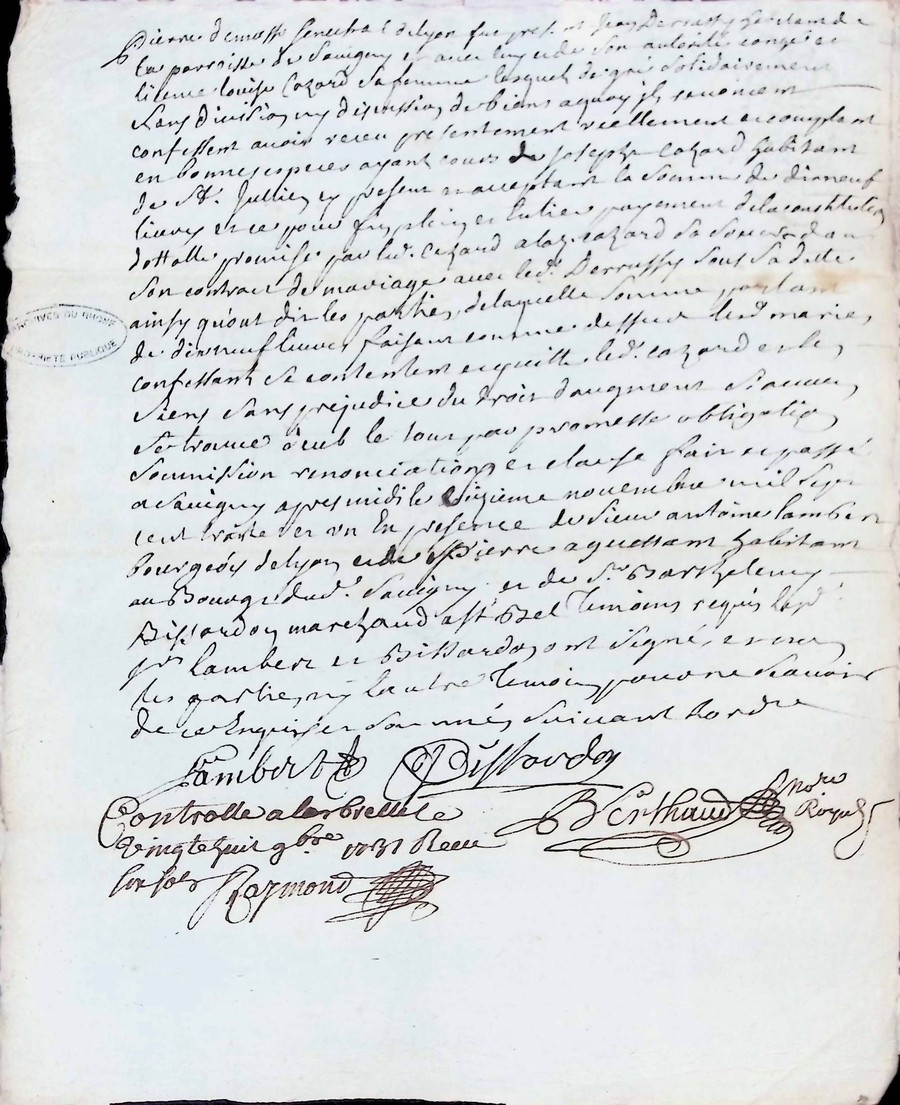 Pierre demosse senechal de lyon fut present Jean Derussy habitant de
la parroisse de Savigny et avec luy et de son autorité congé et
licence louise Cazard sa femme lesquels de gré solidairement
sans division ny discussion de biens aquoy ils renoncent
confessent avoir receu presentement reellement et comptant
en bonnes especes ayant cours de Joseph Cazard habitant
de St. Jullien cy present et acceptant la somme de dixneuf
livres et ce pour fin plein et entier payement de la constitution
dottalle promise par led. Cazard a lad. Cazard sa soeur dans
son contract de mariage avec led. Derrussy sous sa datte
ainsy qu'ont dit les parties, de laquelle somme partant
de dixneuf livres faisant comme dessus lesd. maries
confessant se contentent et quitte led. Cazard et les
siens sans prejudice du droit d'augment si aucun
se trouve le tout par promesse obligation
soumission renonciations et clause fait et passé
a Savigny apres midi le sixieme novembre mil sept
cent trante et un En presence de Sieur antoine lambert
bourgeois de lyon et de Pierre aquettant habitant
au Bourg dud. Savigny et de Sr. Barthelemy
Bissardon marchand Temoins requis lesd.
Srs lambert et Bissardon ont signé, et non
les parties ny l'autre Temoin pour ne scavoir
de ce Enquis et sommés suivant l'ordre
Lambert Bissardon
Controlle a larbrelle le Berthaud Nore
vingt huit 9bre 1731 Receu Royal
six sols Raymond
ARCHIVES DU RHONE
PROPRIETE PUBLIQUE